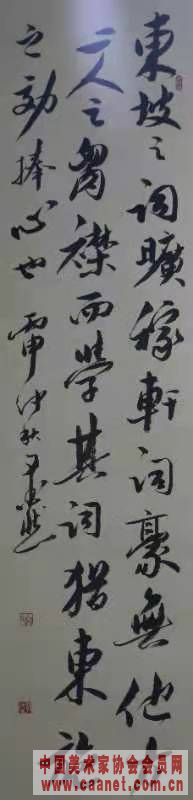 東坡之詞曠稼軒詞豪無他
二人之胷襟而學其詞猶東施
之効捧心也 丙申仲秋
中国美术家协会会员网
www.caanet.com